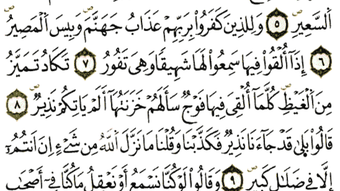 السَّعِيرِ ۝٥ وَلِلَّذِينَ كَفَرُوا۟ بِرَبِّهِمْ عَذَابُ جَهَنَّمَ وَبِئْسَ الْمَصِيرُ
۝٦ إِذَآ أُلْقُوا۟ فِيهَا سَمِعُوا۟ لَهَا شَهِيقًا وَهِىَ تَفُورُ ۝٧ تَكَادُ تَمَيَّزُ
مِنَ الْغَيْظِ كُلَّمَآ أُلْقِىَ فِيهَا فَوْجٌ سَأَلَهُمْ خَزَنَتُهَآ أَلَمْ يَأْتِكُمْ نَذِيرٌ ۝٨
قَالُوا۟ بَلَىٰ قَدْ جَآءَنَا نَذِيرٌ فَكَذَّبْنَا وَقُلْنَا مَا نَزَّلَ اللَّهُ مِن شَىْءٍ إِنْ أَنتُمْ
إِلَّا فِى ضَلَٰلٍ كَبِيرٍ ۝٩ وَقَالُوا۟ لَوْ كُنَّا نَسْمَعُ أَوْ نَعْقِلُ مَا كُنَّا فِىٓ أَصْحَٰبِ